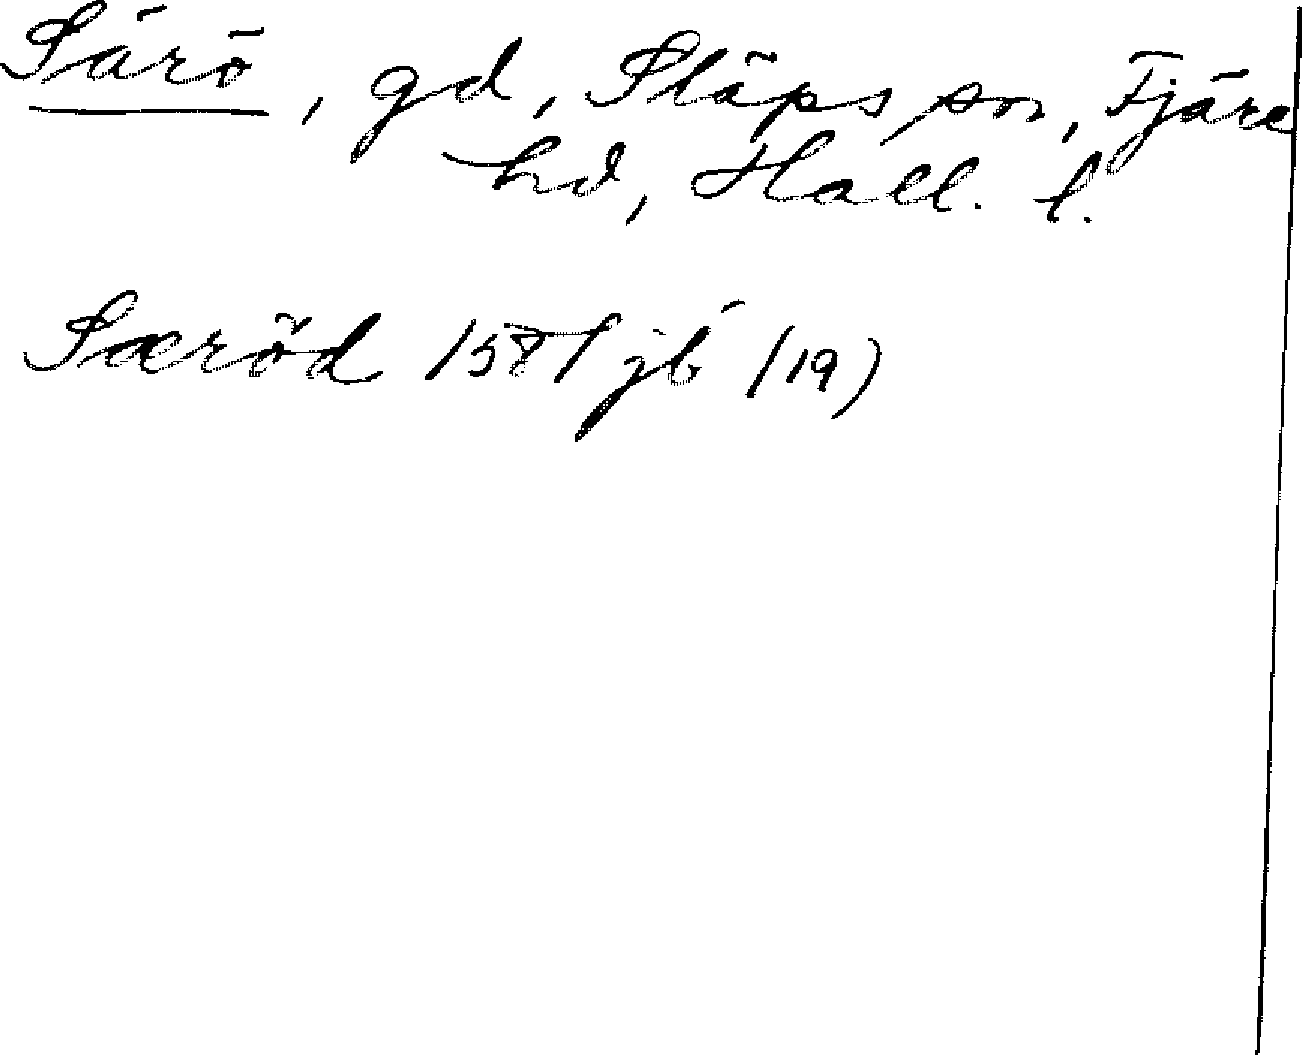 Särö, gd, Släps sn, Fjäre
hd, Hall. l.
Særöd 1581 jb (19)